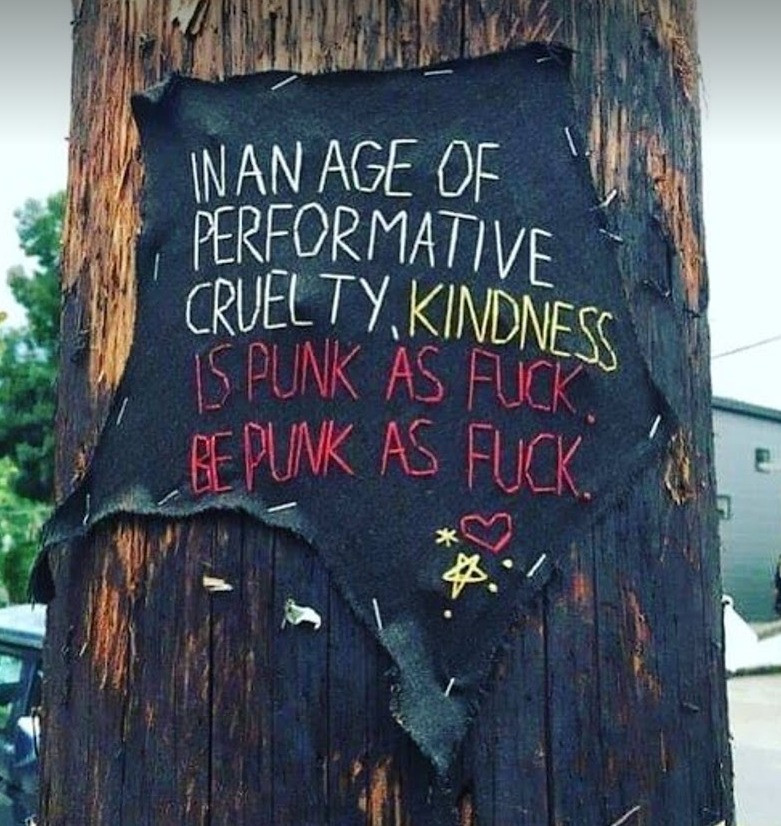 IN AN AGE OF
PERFORMATIVE
CRUELTY, KINDNESS
IS PUNK AS FUCK.
BE PUNK AS FUCK.